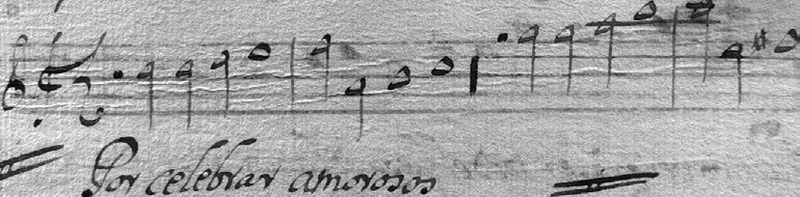 Por celebrar amorosos